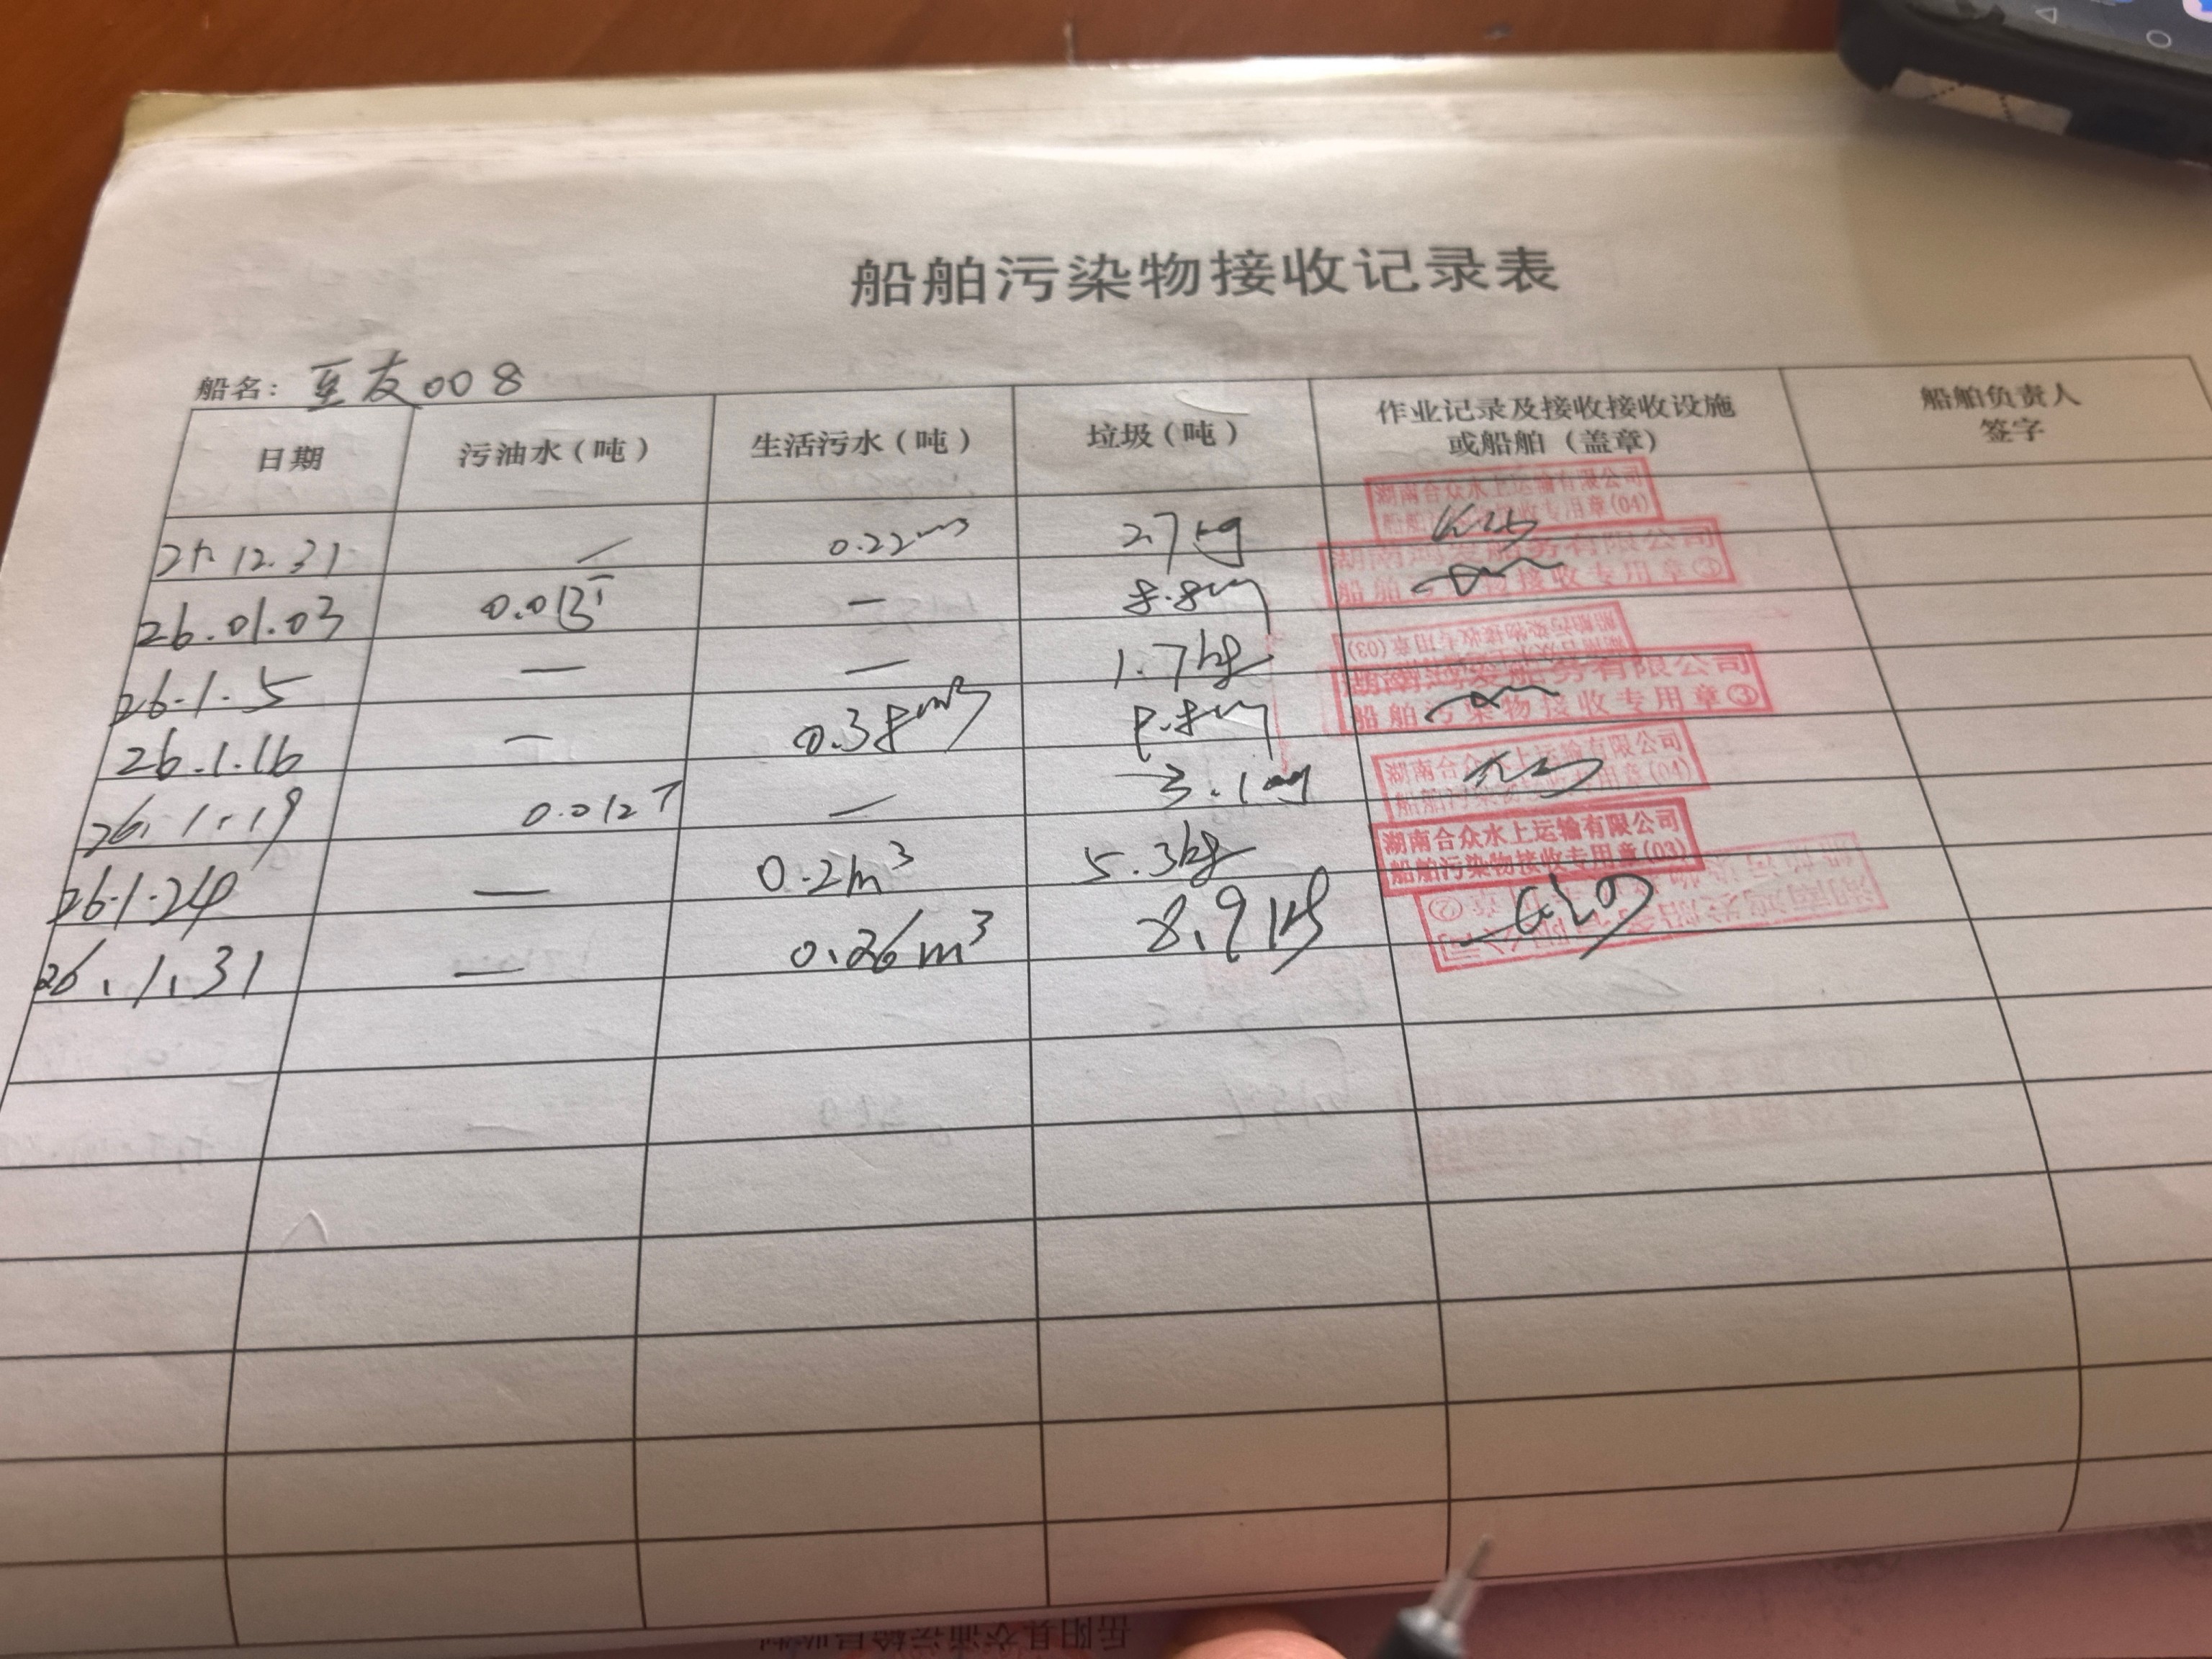 船舶污染物接收记录表
船名: 豆友008
日期 污油水(吨) 生活污水(吨) 垃圾(吨) 作业记录及接收接收设施或船舶(盖章) 船舶负责人签字
25.12.31 / 0.22m³ 2.7kg 湖南合众水上运输有限公司 船舶污染物接收专用章(04)
26.01.03 0.013T — 8.8kg 湖南鸿发船务有限公司 船舶污染物接收专用章③
26.1.5 — — 1.7kg 湖南合众水上运输有限公司 船舶污染物接收专用章(03)
26.1.16 — 0.38m³ 8.8kg 湖南鸿发船务有限公司 船舶污染物接收专用章③
26.1.19 0.012T — 3.1kg 湖南合众水上运输有限公司 船舶污染物接收专用章(04)
26.1.24 — 0.2m³ 5.3kg 湖南合众水上运输有限公司 船舶污染物接收专用章(03)
26.1.31 — 0.26m³ 8.9kg 湖南鸿发船务有限公司 船舶污染物接收专用章②
岳阳县交通运输局监制